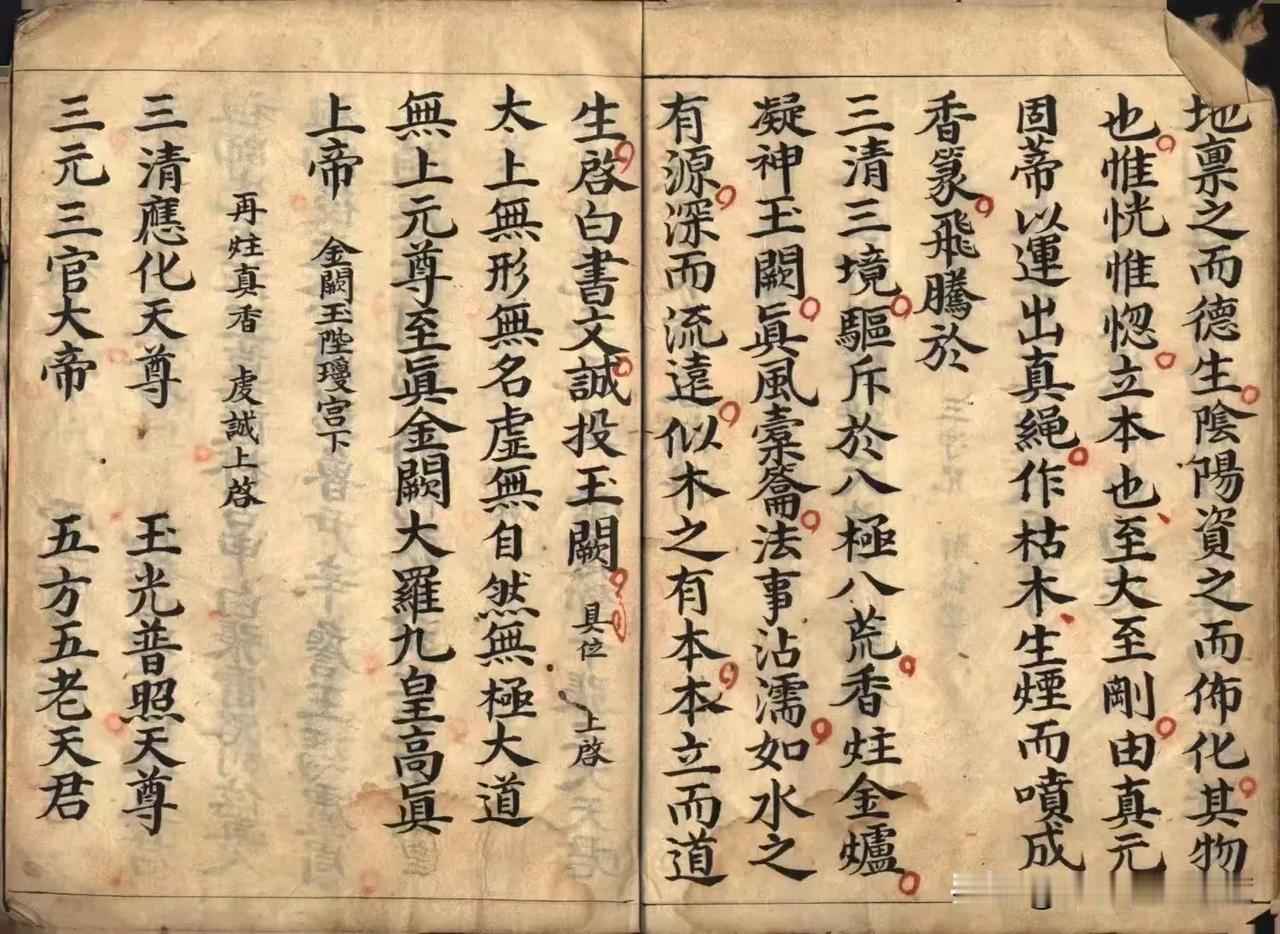 地禀之而德生陰陽資之而佈化其物
也惟恍惟惚立本也至大至剛由真元
固蒂以運出真繩作枯木生煙而噴成
香篆飛騰於
三清三境驅斥於八極八荒香炷金爐
凝神玉闕眞風槖籥法事沾濡如水之
有源源深而流遠似木之有本本立而道
生啓白書文誠投玉闕 具位 上啓
太上無形無名虛無自然無極大道
無上元尊至眞金闕大羅九皇高眞
上帝 金闕玉陛瓊宫下
再炷真香 虔誠上啓
三清應化天尊 玉光普照天尊
三元三官大帝 五方五老天君